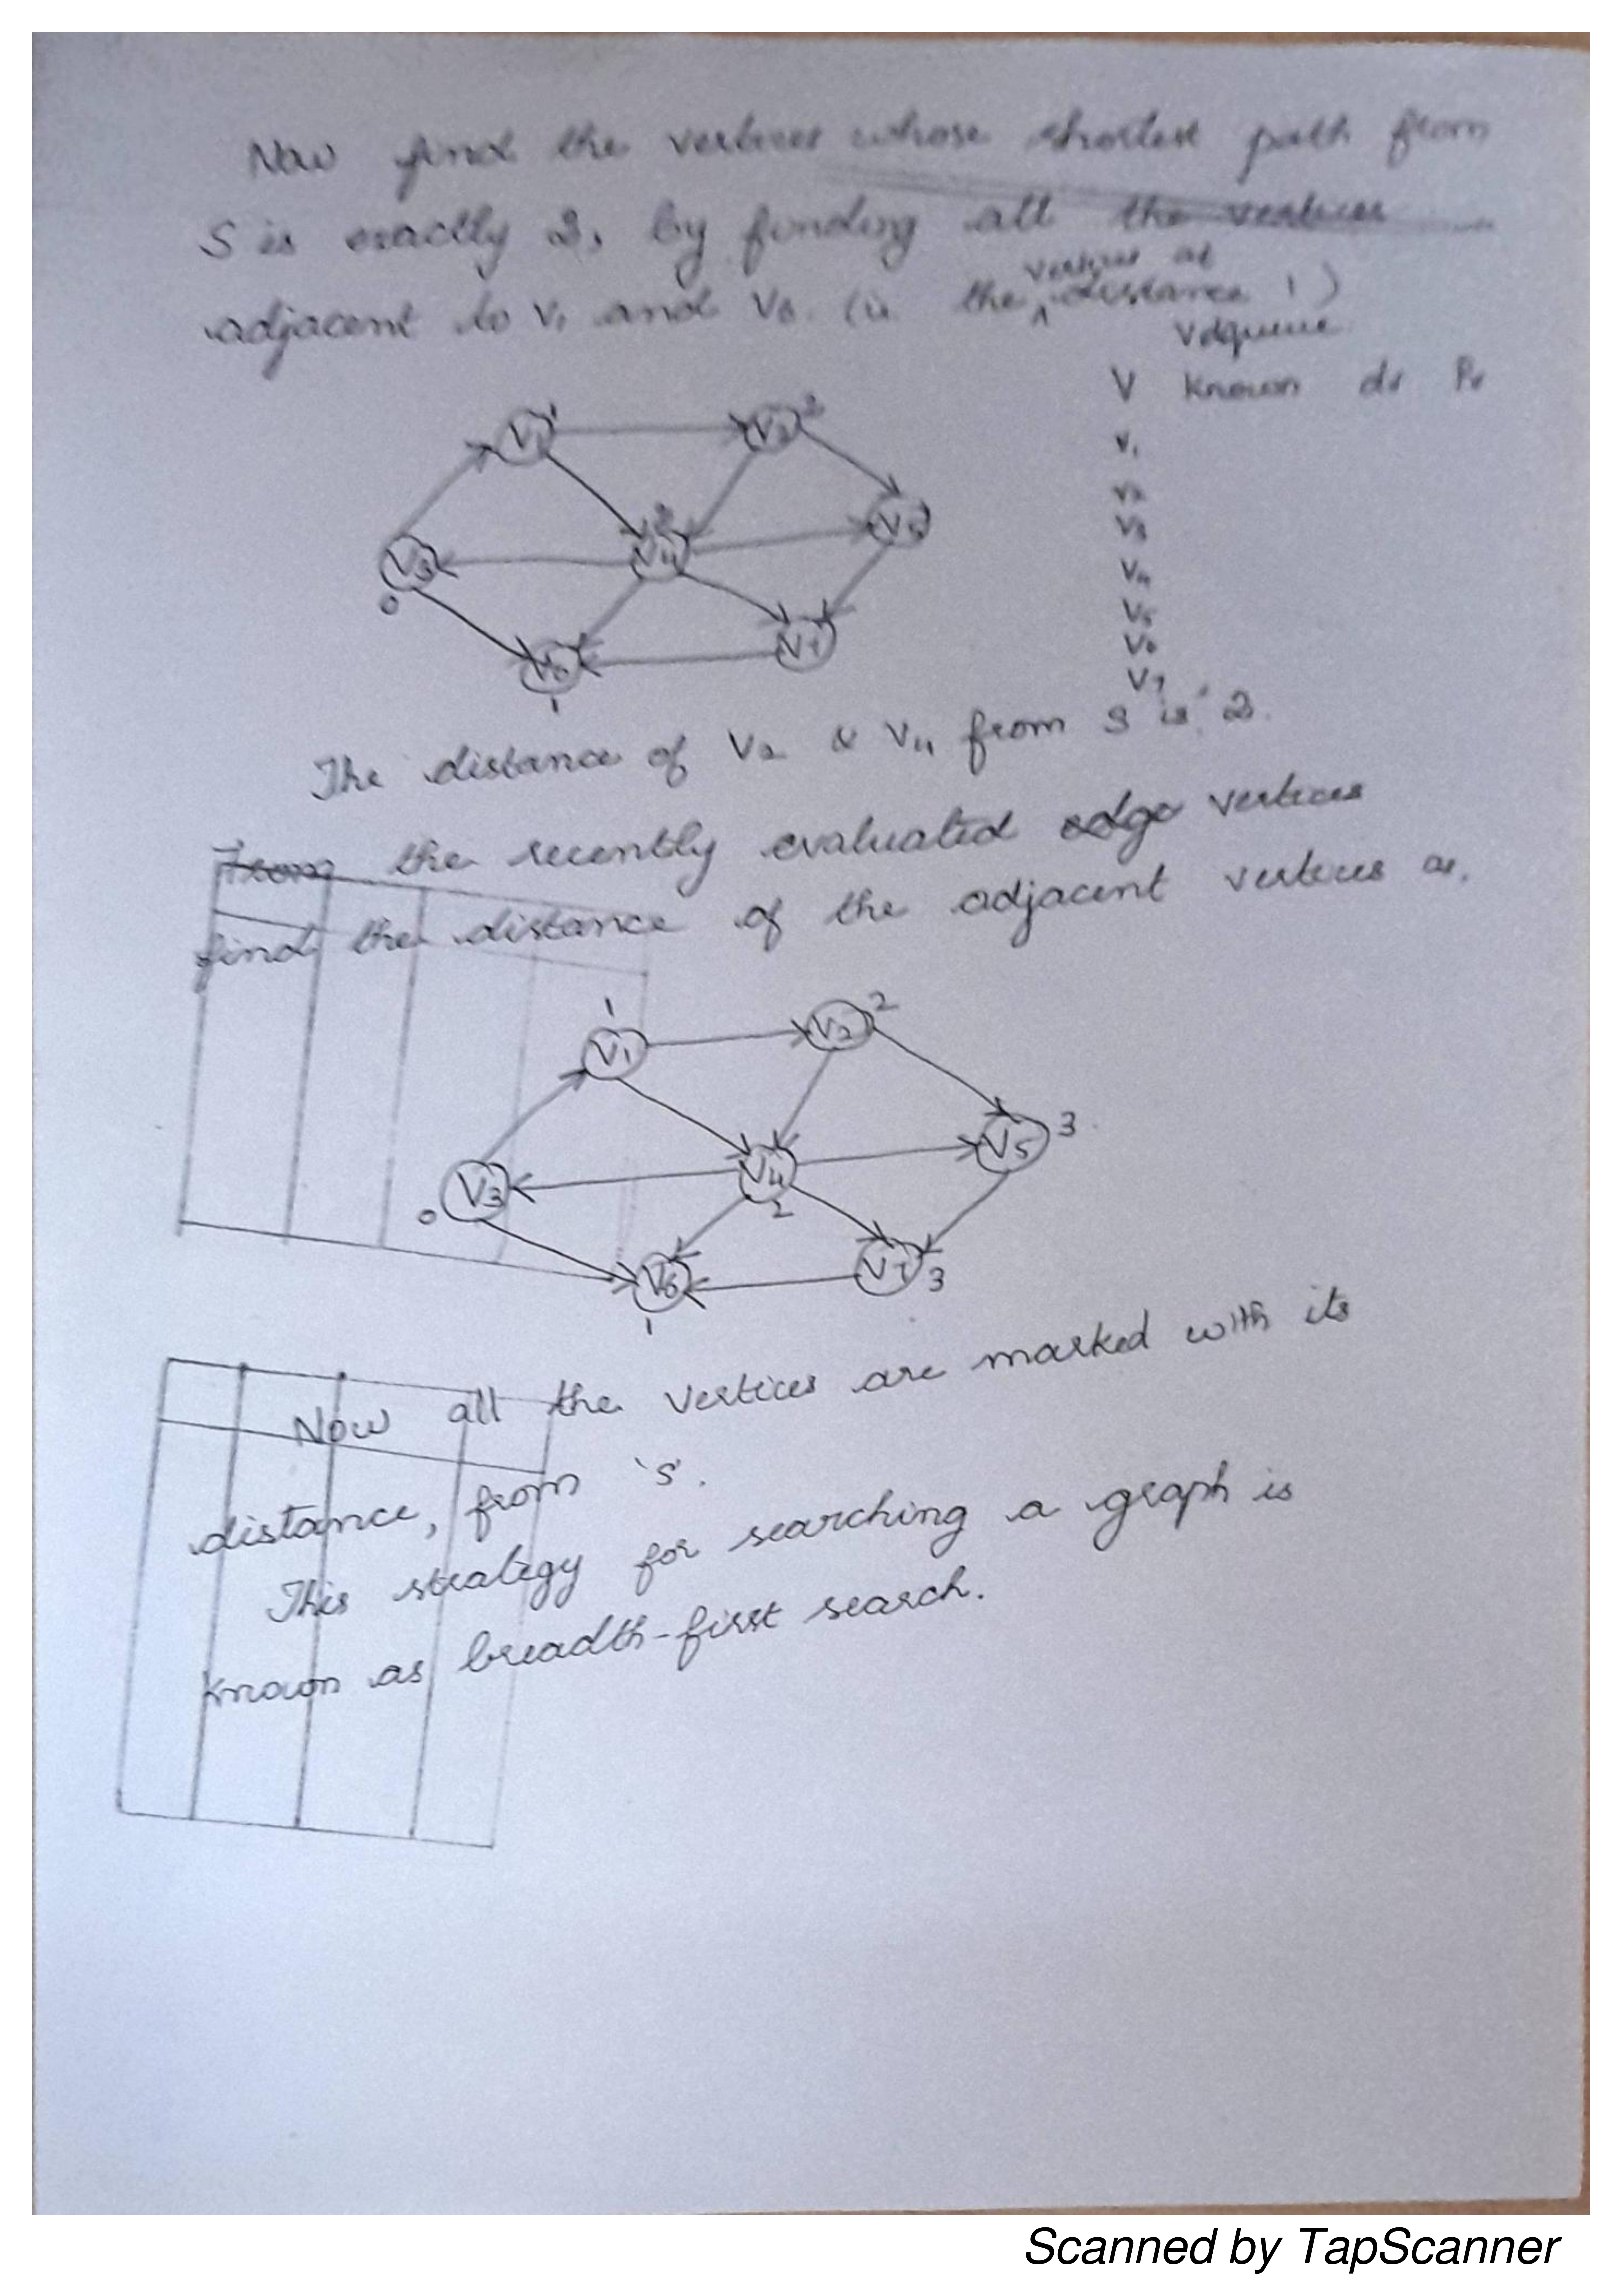 Now find the vertices whose shortest path from
S is exactly 2, by finding all the vertices
adjacent to V1 and V6. (ie the vertices at distance 1)
Vdqueue
V Known dv Pv
V1
V2
V3
V4
V5
V6
V7
V1 1
V2 2
V3 0
V4 2
V5
V6 1
V7
The distance of V2 & V4 from S is 2.
From the recently evaluated edge vertices
find the distance of the adjacent vertices as,
V1 1
V2 2
V3 0
V4 2
V5 3
V6 1
V7 3
Now all the vertices are marked with its
distance, from 'S'.
This strategy for searching a graph is
known as breadth-first search.
Scanned by TapScanner